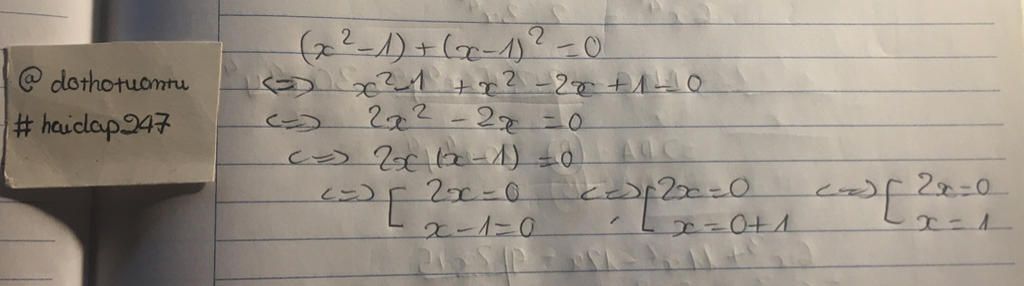 @ dothotuomtu
# hoidap247
(x²-1)+(x-1)²=0
<=> x²-1 +x²-2x+1=0
<=> 2x²-2x=0
<=> 2x(x-1)=0
<=> [ 2x=0 <=> [ 2x=0 <=> [ 2x=0
x-1=0 x=0+1 x=1